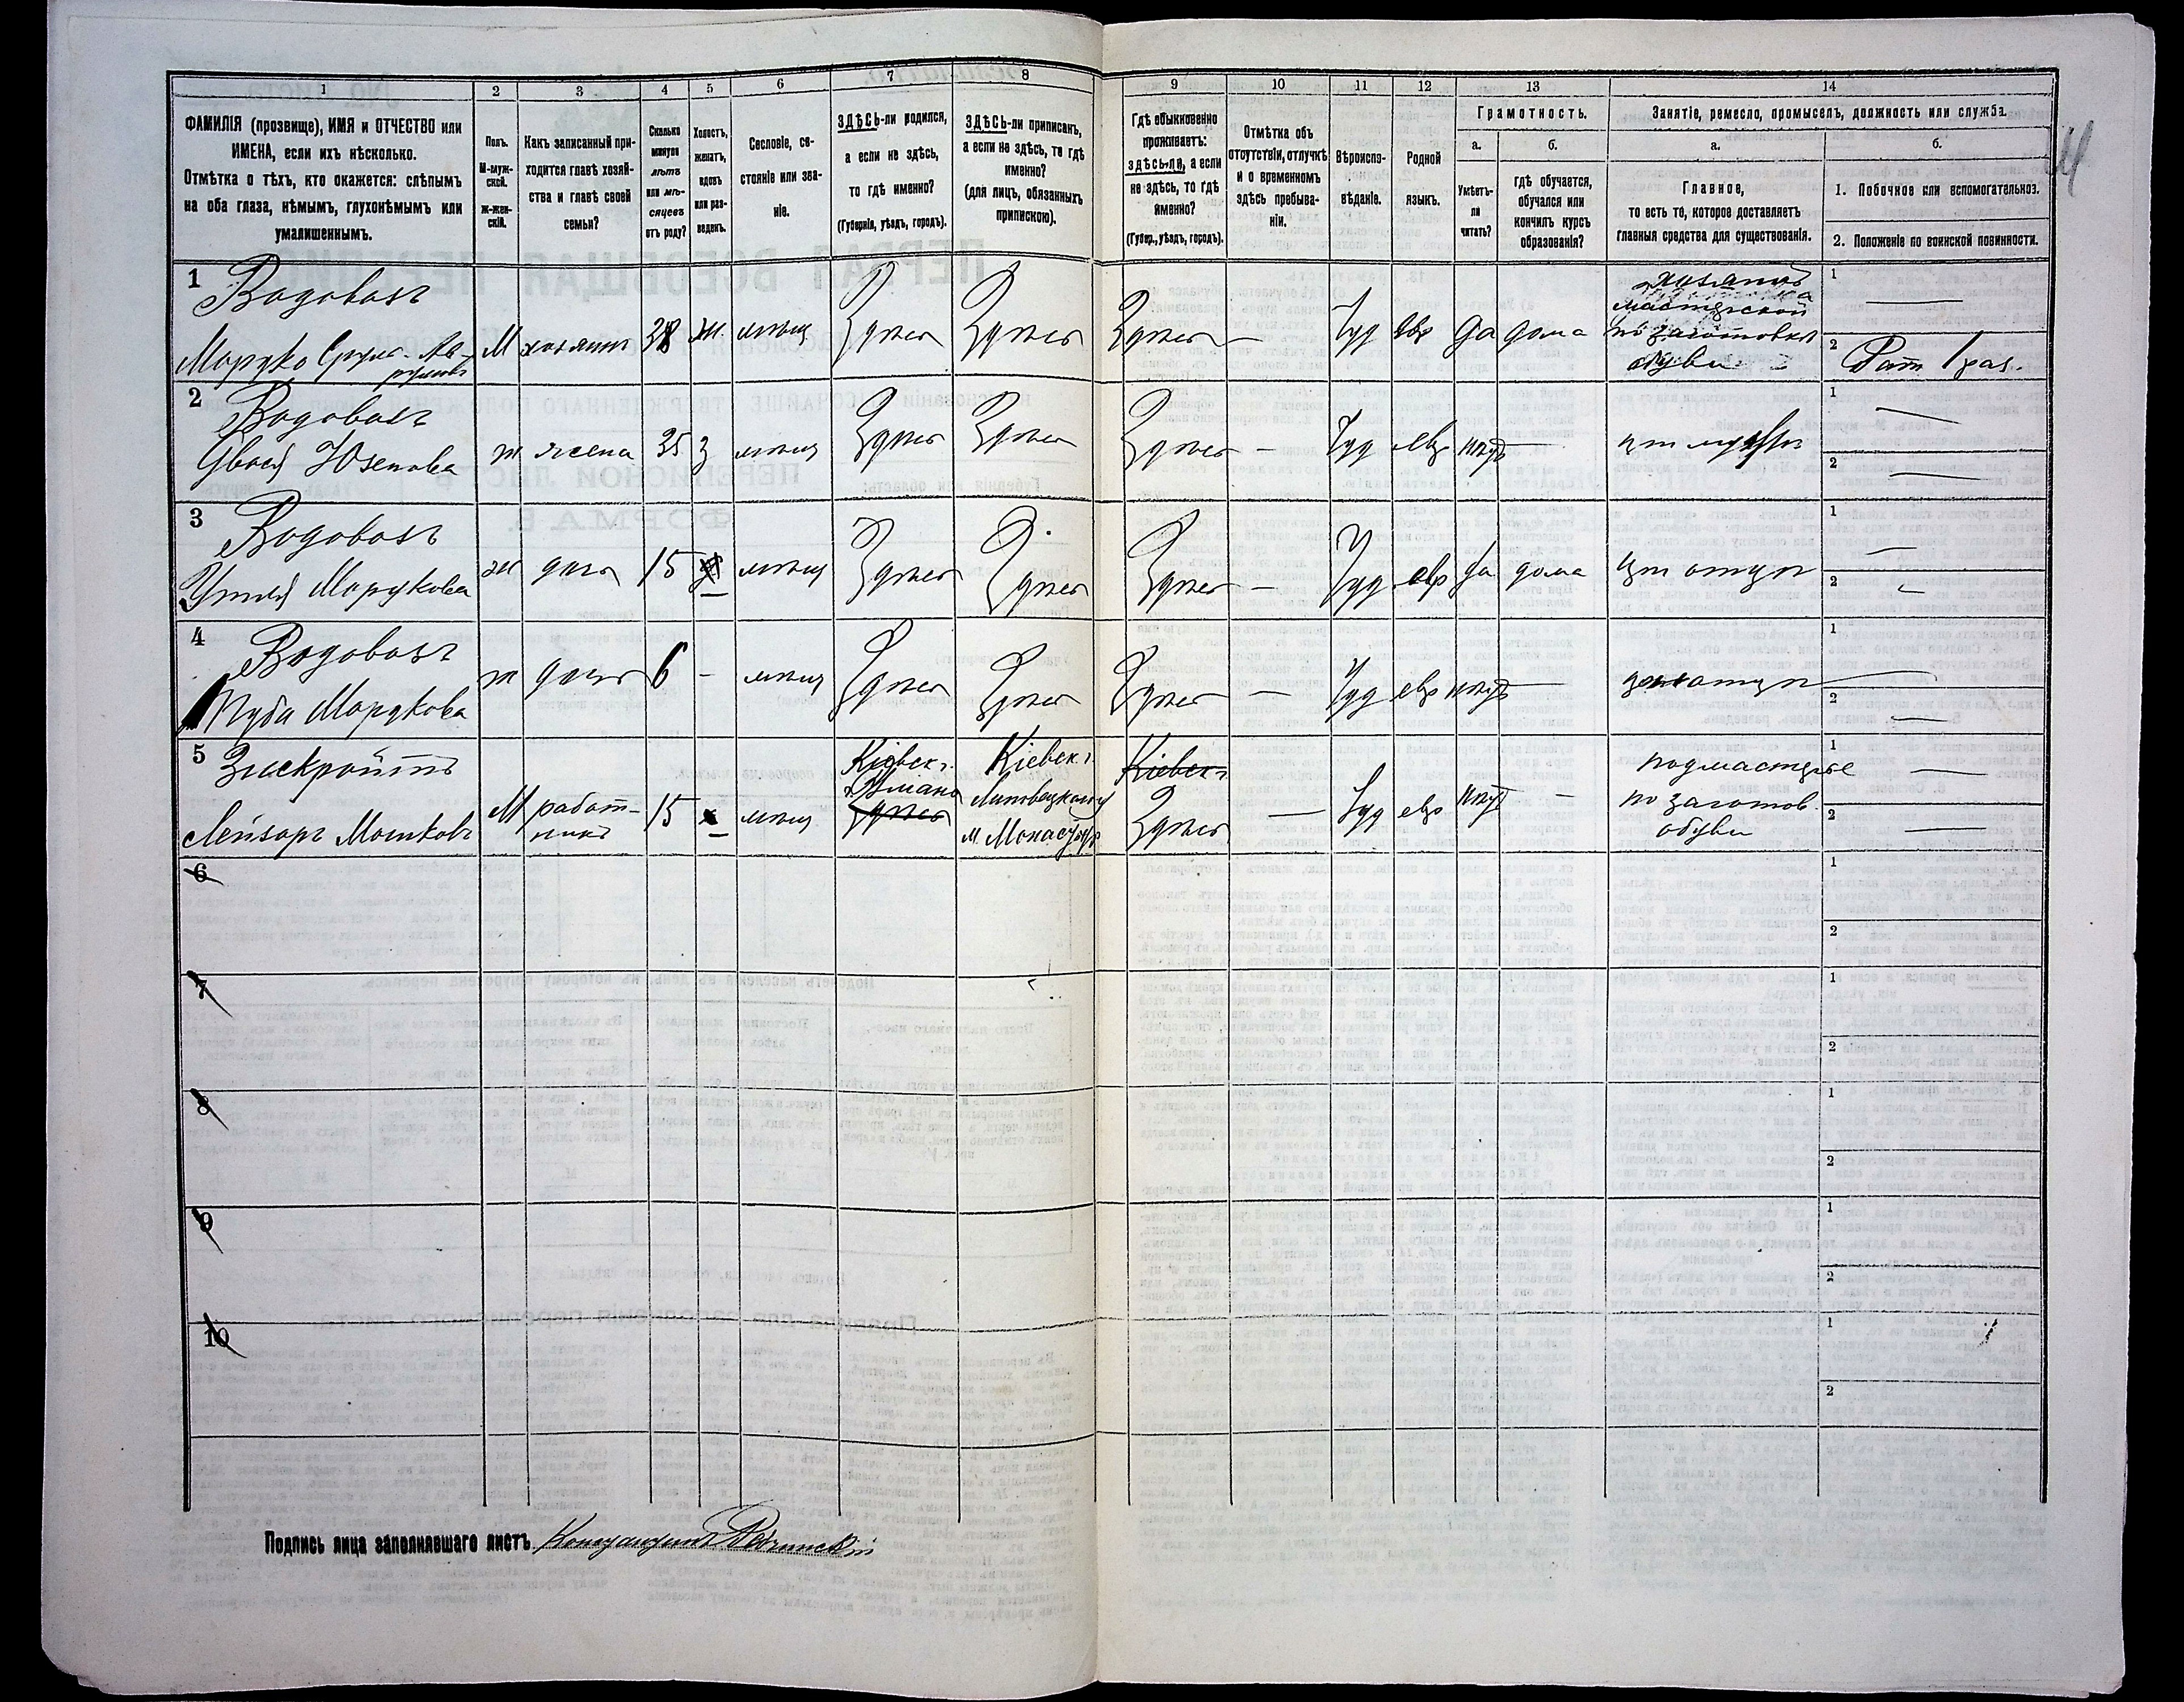 1
2
3
4
5
6
7
8
9
10
11
12
13
14
ФАМИЛІЯ (прозвище), ИМЯ и ОТЧЕСТВО или
ИМЕНА, если ихъ нѣсколько.
Отмѣтка о тѣхъ, кто окажется: слѣпымъ
на оба глаза, нѣмымъ, глухонѣмымъ или
умалишеннымъ.
Полъ.
М-муж-
ской.
ж-жен-
скій.
Какъ записанный при-
ходится главѣ хозяй-
ства и главѣ своей
семьи?
Сколько
минуло
лѣтъ
или мѣ-
сяцевъ
отъ роду?
Холостъ,
женатъ,
вдовъ
или раз-
веденъ.
Сословіе, со-
стояніе или зва-
ніе.
ЗДѢСЬ-ли родился,
а если не здѣсь,
то гдѣ именно?
(Губернія, уѣздъ, городъ).
ЗДѢСЬ-ли приписанъ,
а если не здѣсь, то гдѣ
именно?
(для лицъ, обязанныхъ
припискою).
Гдѣ обыкновенно
проживаетъ:
здѣсь-ли, а если
не здѣсь, то гдѣ
именно?
(Губер., уѣздъ, городъ).
Отмѣтка объ
отсутствіи, отлучкѣ
и о временномъ
здѣсь пребыва-
ніи.
Вѣроиспо-
вѣданіе.
Родной
языкъ.
Грамотность.
а.
Умѣетъ-
ли
читать?
б.
гдѣ обучается,
обучался или
кончилъ курсъ
образованія?
Занятіе, ремесло, промыселъ, должность или служба.
а.
Главное,
то есть то, которое доставляетъ
главныя средства для существованія.
б.
1. Побочное или вспомогательное.
2. Положеніе по воинской повинности.
1
Водовозъ
Мордко Срулъ-Ав-
румовъ
М
хозяинъ
38
ж.
мѣщ
Здѣсь
Здѣсь
Здѣсь
—
Іуд
евр
да
дома
хозяинъ
мастерской
по заготовкѣ
обуви
1
—
2
Рат. 1 раз.
2
Водовозъ
Двося Юзепова
ж
жена
35
з
мѣщ
Здѣсь
Здѣсь
Здѣсь
—
Іуд
евр
нѣтъ
—
при мужѣ
1
—
2
—
3
Водовозъ
Мордкова
ж
дочь
15
—
мѣщ
Здѣсь
Здѣсь
Здѣсь
—
Іуд
евр
да
дома
при отцѣ
1
—
2
—
4
Водовозъ
Мордкова
ж
дочь
6
-
мѣщ
Здѣсь
Здѣсь
Здѣсь
—
Іуд
евр
нѣтъ
—
при отцѣ
1
—
2
—
5
Зискройтъ
Лейзоръ Мошковъ
М
работ-
никъ
15
х
мѣщ
Кіевск.
Умань
Здѣсь
Кіевск.
Липовецкому
м. Монастыр
Кіевск.
Здѣсь
—
Іуд
евр
нѣтъ
—
подмастерье
по заготов.
обуви
1
—
2
—
6
1
2
7
1
2
8
1
2
9
1
2
10
1
2
Подпись лица заполнявшаго листъ